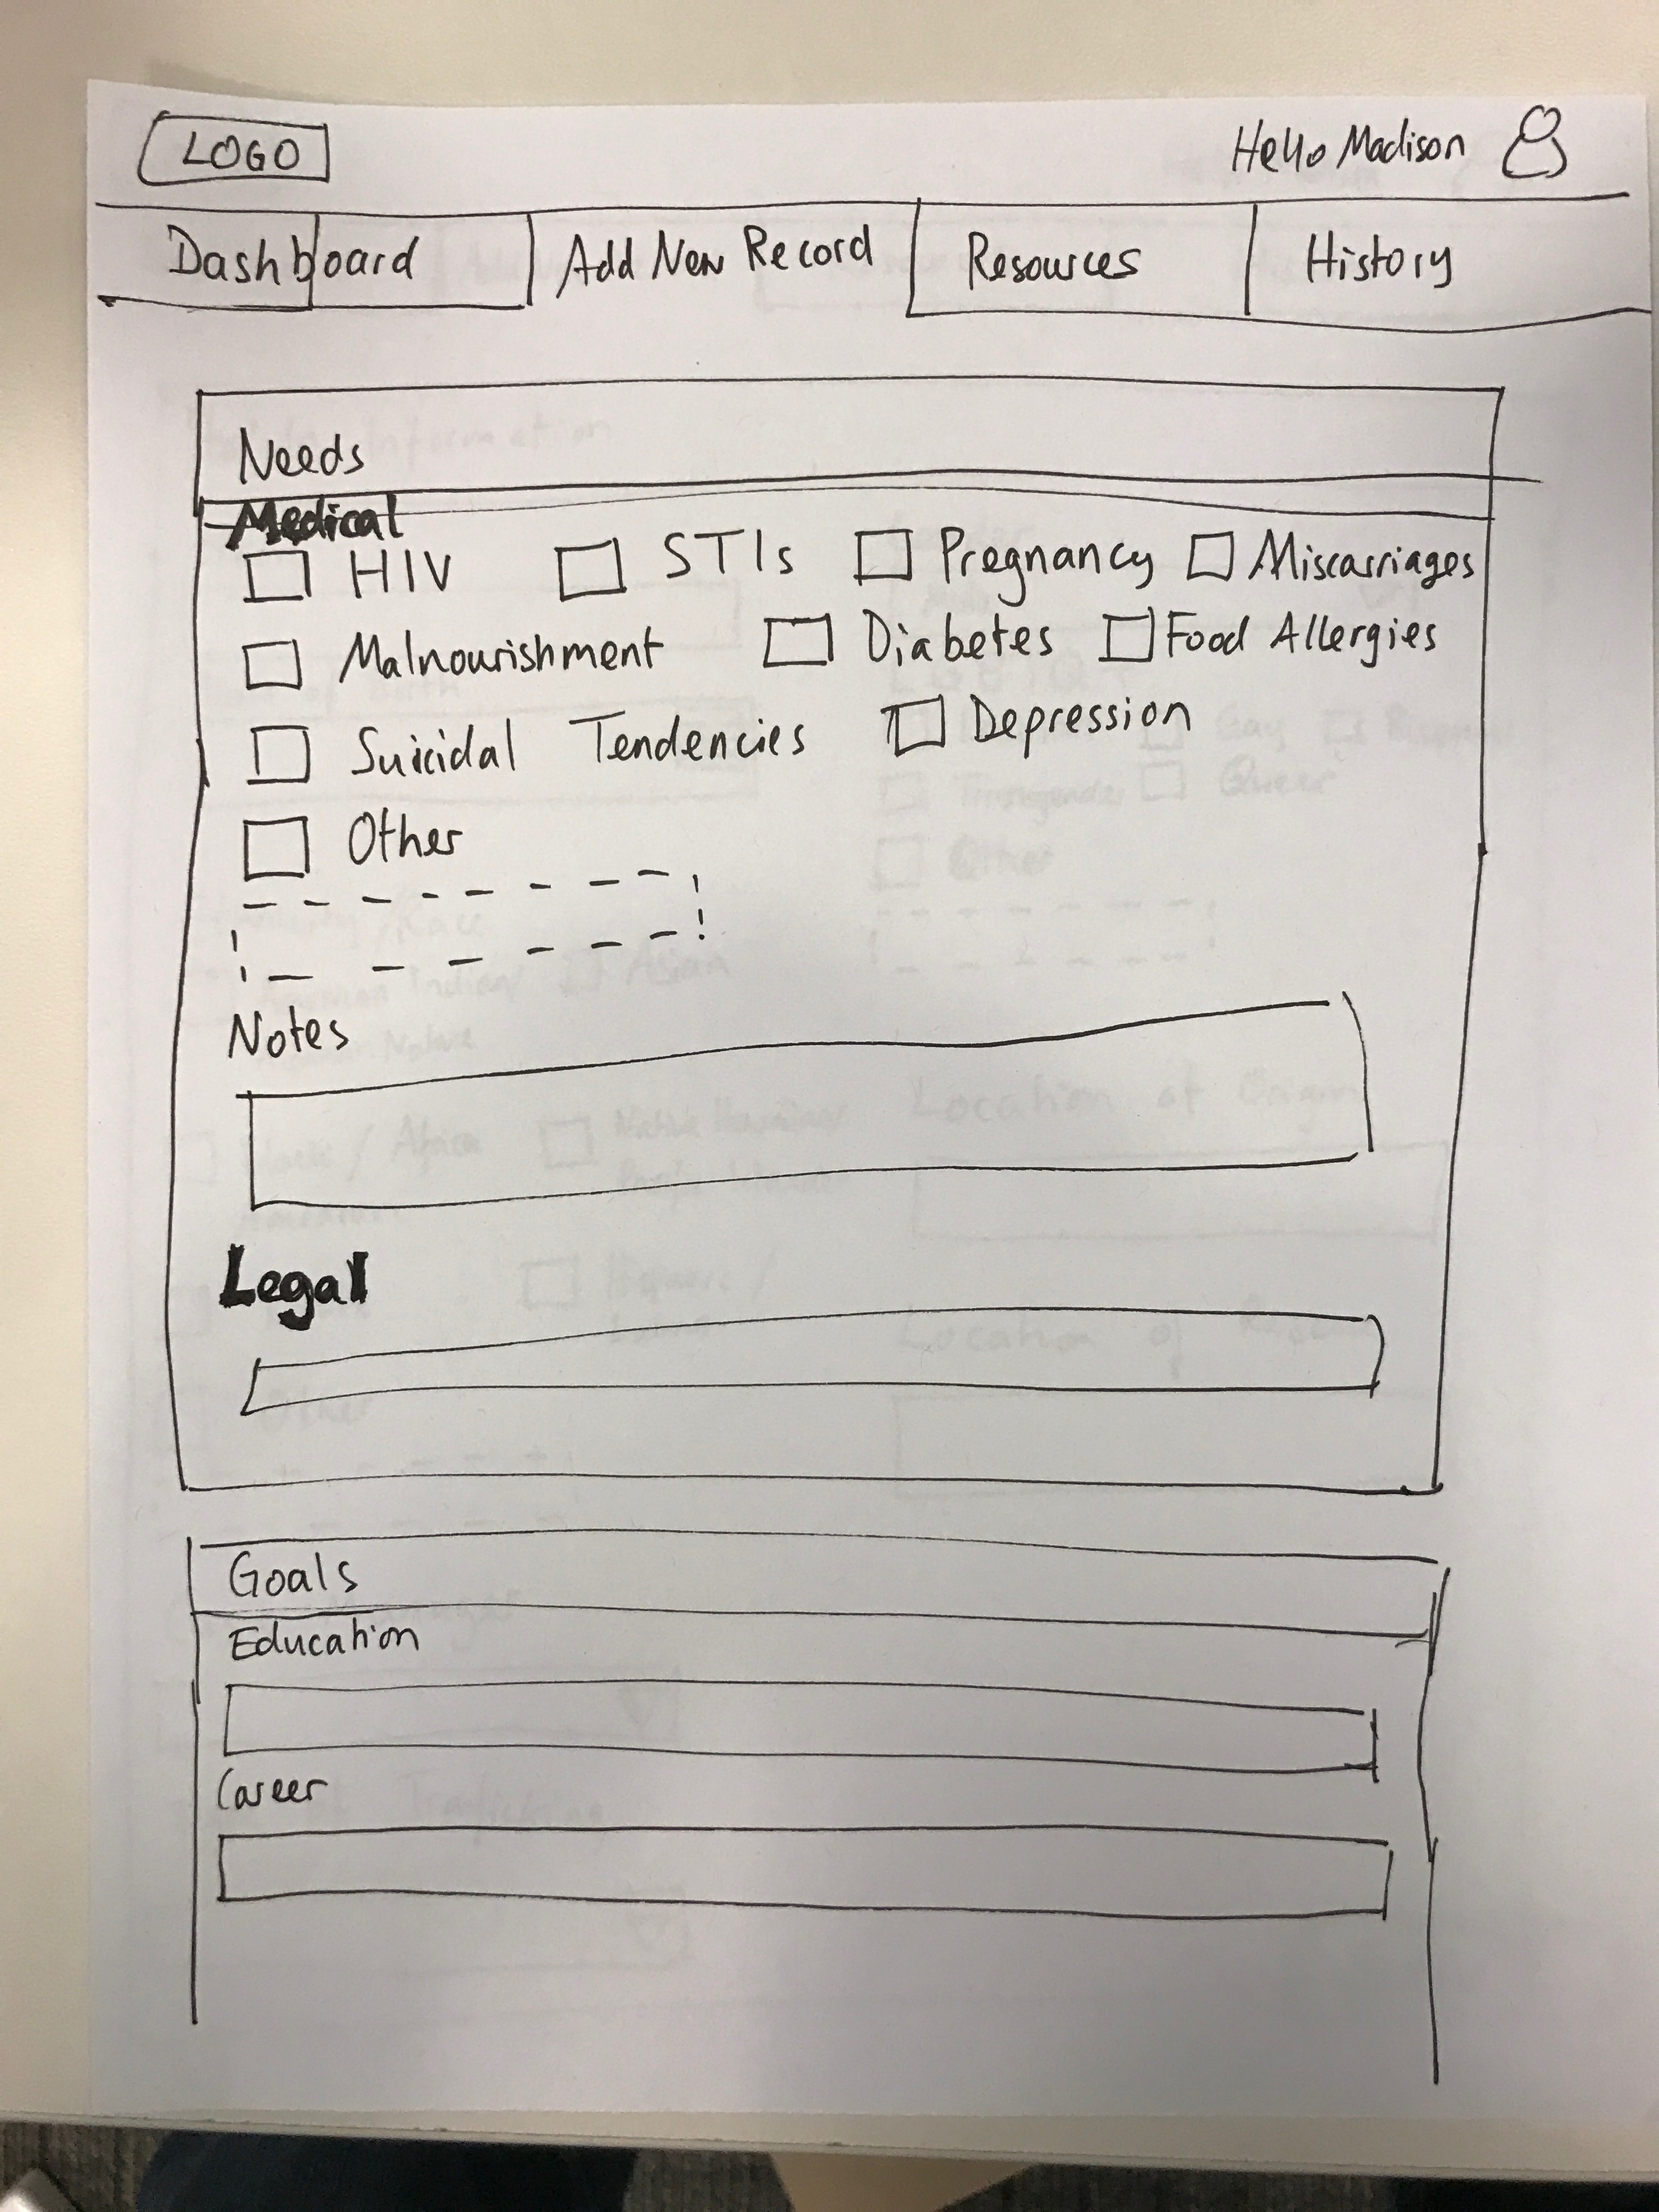 LOGO
Hello Madison
Dashboard Add New Record Resources History
Needs
Medical
HIV STIs Pregnancy Miscarriages
Malnourishment Diabetes Food Allergies
Suicidal Tendencies Depression
Other
Notes
Legal
Goals
Education
Career